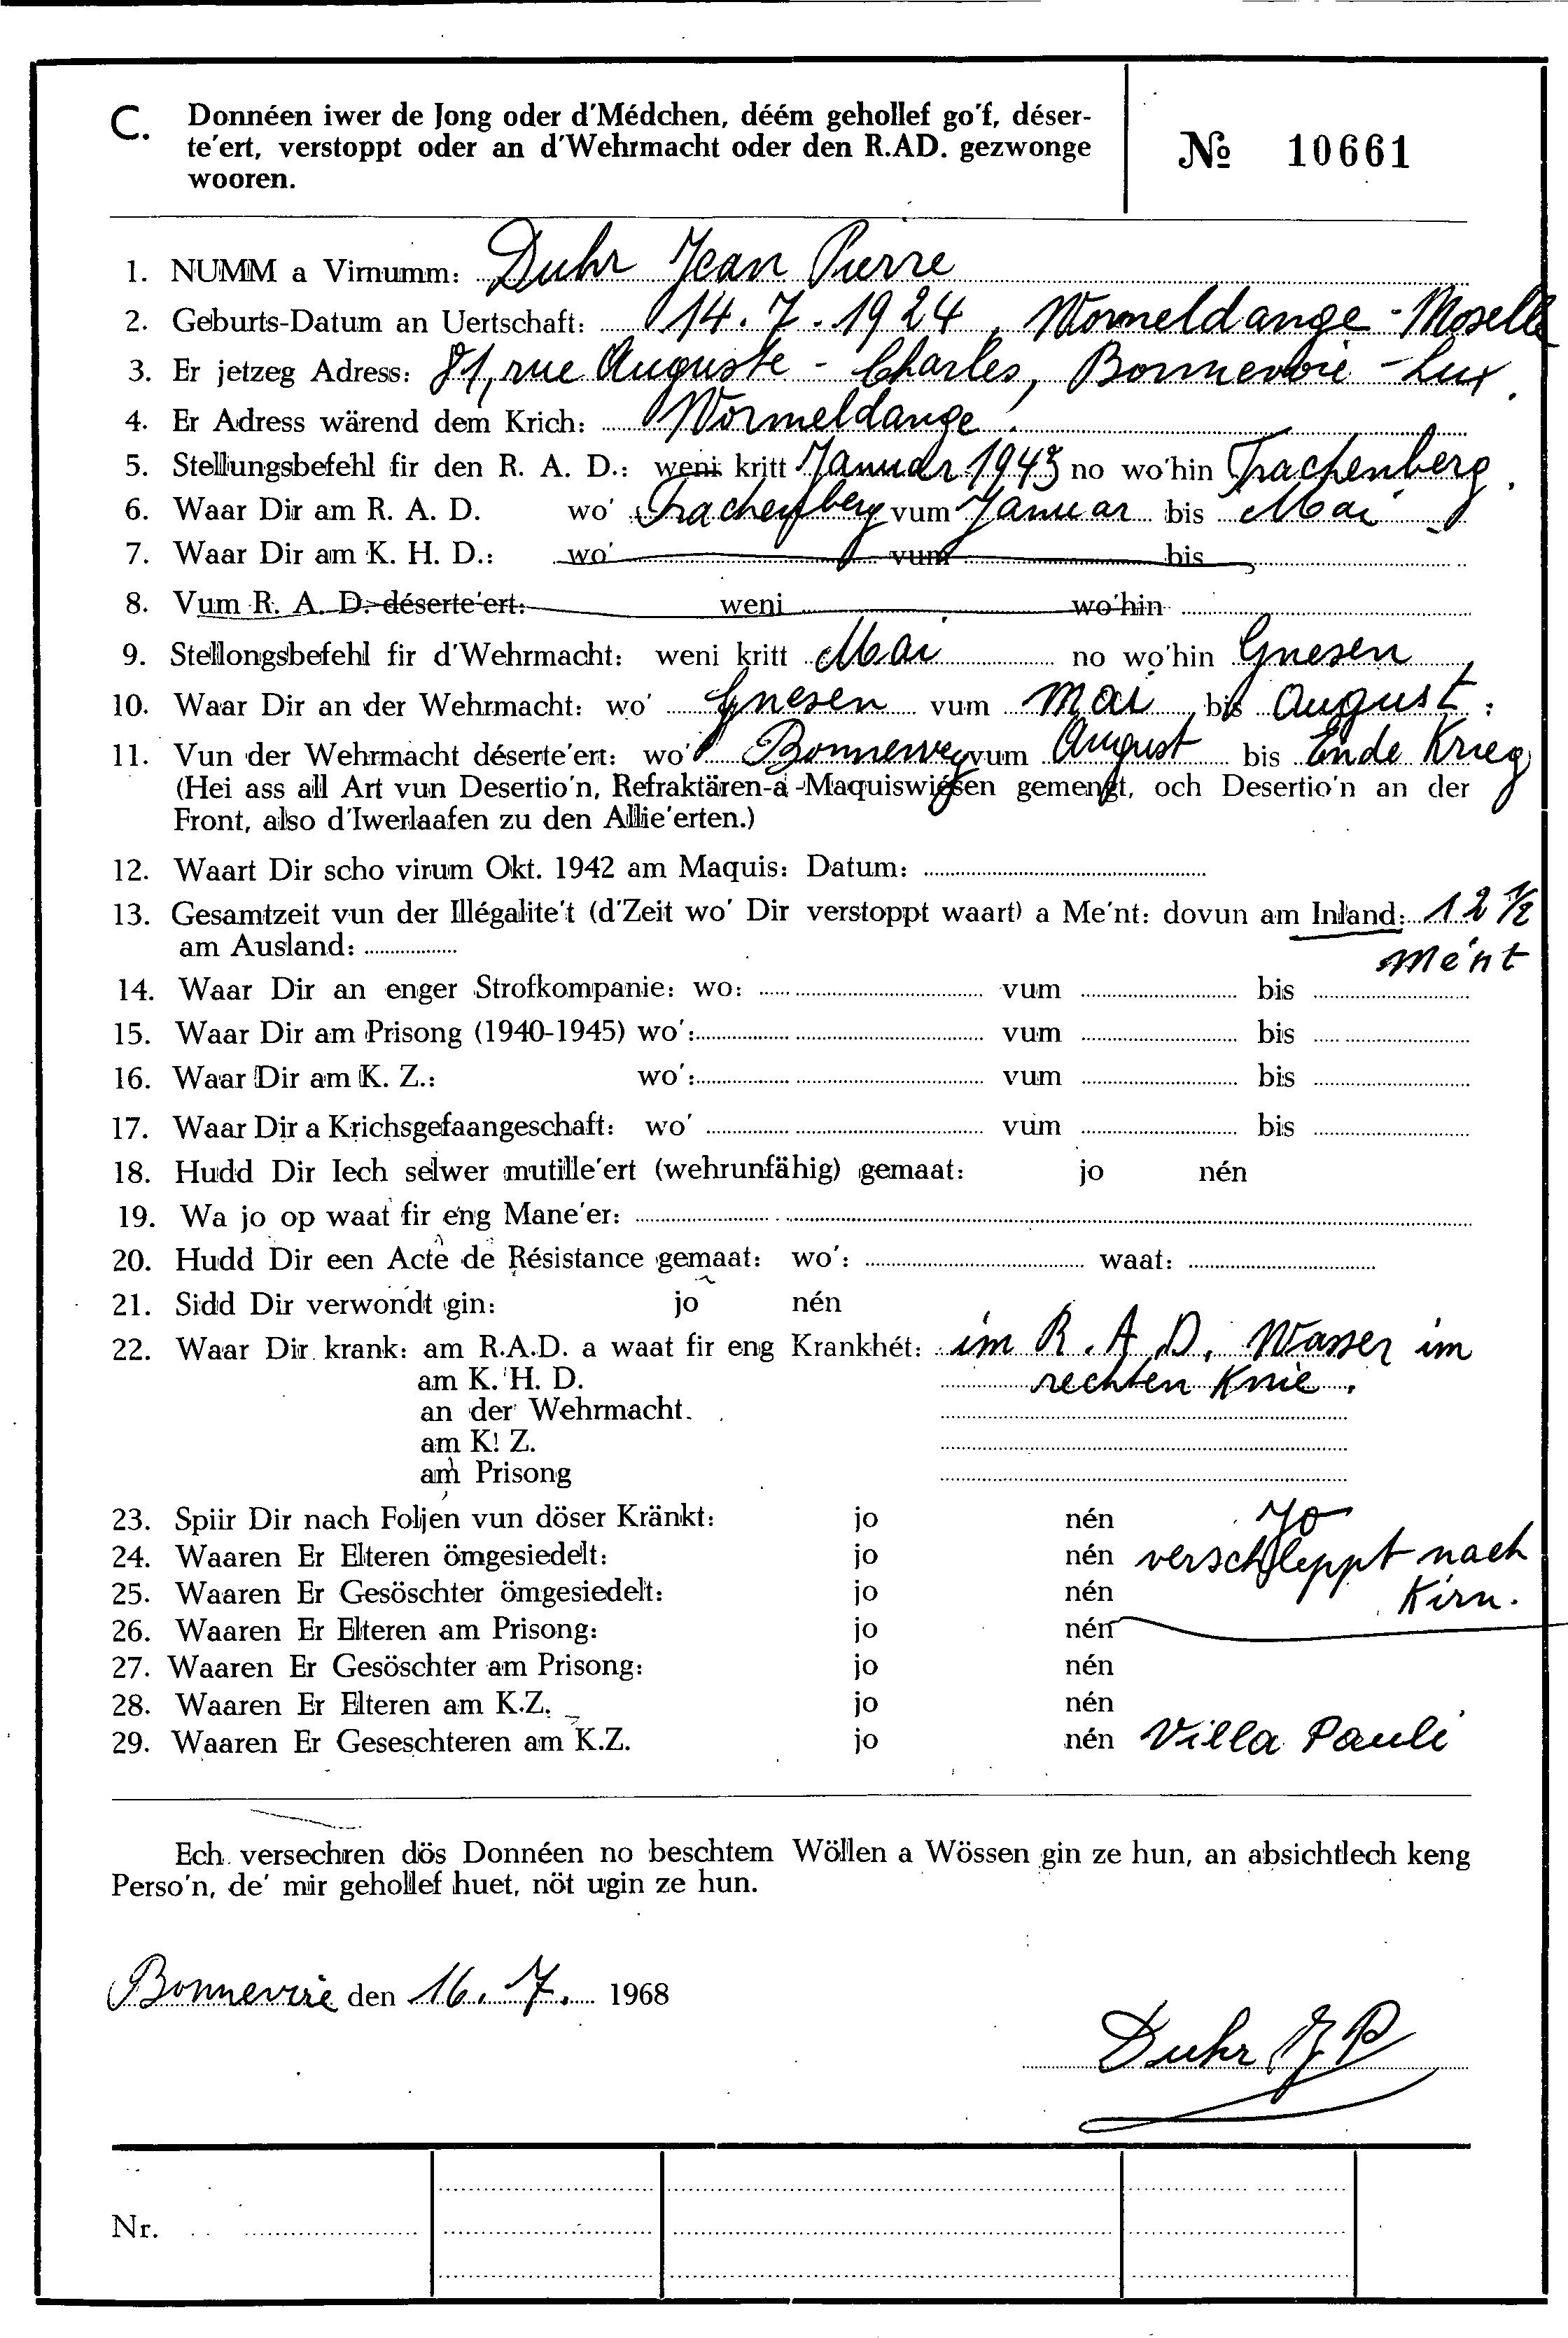 C. Donnéen iwer de Jong oder d'Médchen, déém gehollef go'f, déser-
te'ert, verstoppt oder an d'Wehrmacht oder den R.AD. gezwonge
wooren.
№ 10661
1. NUMM a Virnumm: Duhr Jean Pierre
2. Geburts-Datum an Uertschaft: 14.7.1924, Wormeldange-Moselle
3. Er jetzeg Adress: 81, rue Auguste-Charles, Bonnevoie-Lux.
4. Er Adress wärend dem Krich: Wormeldange.
5. Stellungsbefehl fir den R. A. D.: weni kritt Januar 1943 no wo'hin Trachenberg.
6. Waar Dir am R. A. D. wo' Trachenberg vum Januar bis Mai
7. Waar Dir am K. H. D.: wo' vum bis
8. Vum R. A. D. déserte'ert: weni wo'hin
9. Stellongsbefehl fir d'Wehrmacht: weni kritt Mai no wo'hin Gnesen
10. Waar Dir an der Wehrmacht: wo' Gnesen vum Mai bis August:
11. Vun der Wehrmacht déserte'ert: wo' Bonneweg vum August bis Ende Krieg
(Hei ass all Art vun Desertio'n, Refraktären-a-Maquiswiesen gemengt, och Desertio'n an der
Front, also d'Iwerlaafen zu den Allie'erten.)
12. Waart Dir scho virum Okt. 1942 am Maquis: Datum:
13. Gesamtzeit vun der Illégalite't (d'Zeit wo' Dir verstoppt waart) a Me'nt: dovun am Inland: 12 ½
am Ausland: Me'nt
14. Waar Dir an enger Strofkompanie: wo: vum bis
15. Waar Dir am Prisong (1940-1945) wo': vum bis
16. Waar Dir am K. Z.: wo': vum bis
17. Waar Dir a Krichsgefaangeschaft: wo' vum bis
18. Hudd Dir Iech selwer mutille'ert (wehrunfähig) gemaat: jo nén
19. Wa jo op waat fir eng Mane'er:
20. Hudd Dir een Acte de Résistance gemaat: wo': waat:
21. Sidd Dir verwondt gin: jo nén
22. Waar Dir krank: am R.A.D. a waat fir eng Krankhét: im R.A.D. Wasser im
am K. H. D. rechten Knie.
an der Wehrmacht.
am K. Z.
am Prisong
23. Spiir Dir nach Foljen vun döser Kränkt: jo nén Jo
24. Waaren Er Elteren ömgesiedelt: jo nén verschleppt nach
25. Waaren Er Gesöschter ömgesiedelt: jo nén Kirn.
26. Waaren Er Elteren am Prisong: jo nén
27. Waaren Er Gesöschter am Prisong: jo nén
28. Waaren Er Elteren am K.Z. jo nén
29. Waaren Er Geseschteren am K.Z. jo nén Villa Pauli
Ech versechren dös Donnéen no beschtem Wöllen a Wössen gin ze hun, an absichtlech keng
Perso'n, de' mir gehollef huet, nöt ugin ze hun.
Bonnevoie den 16. 7. 1968
Duhr J P
Nr.